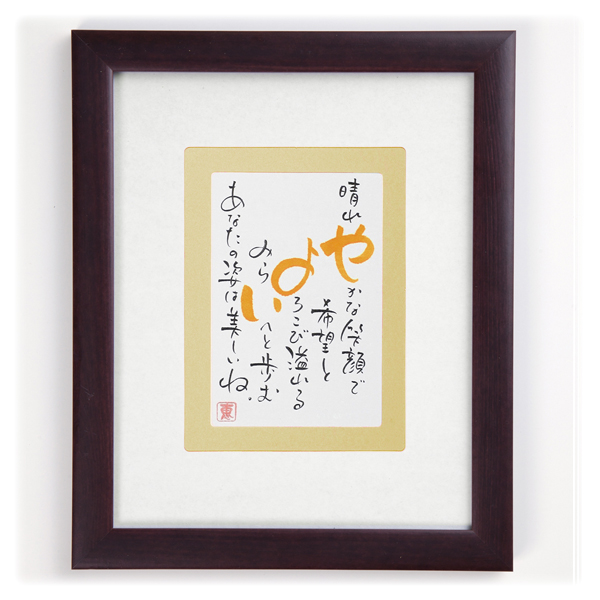 晴れやかな笑顔で
希望と
よろこび溢れる
みらいへと歩む
あなたの姿は美しいね